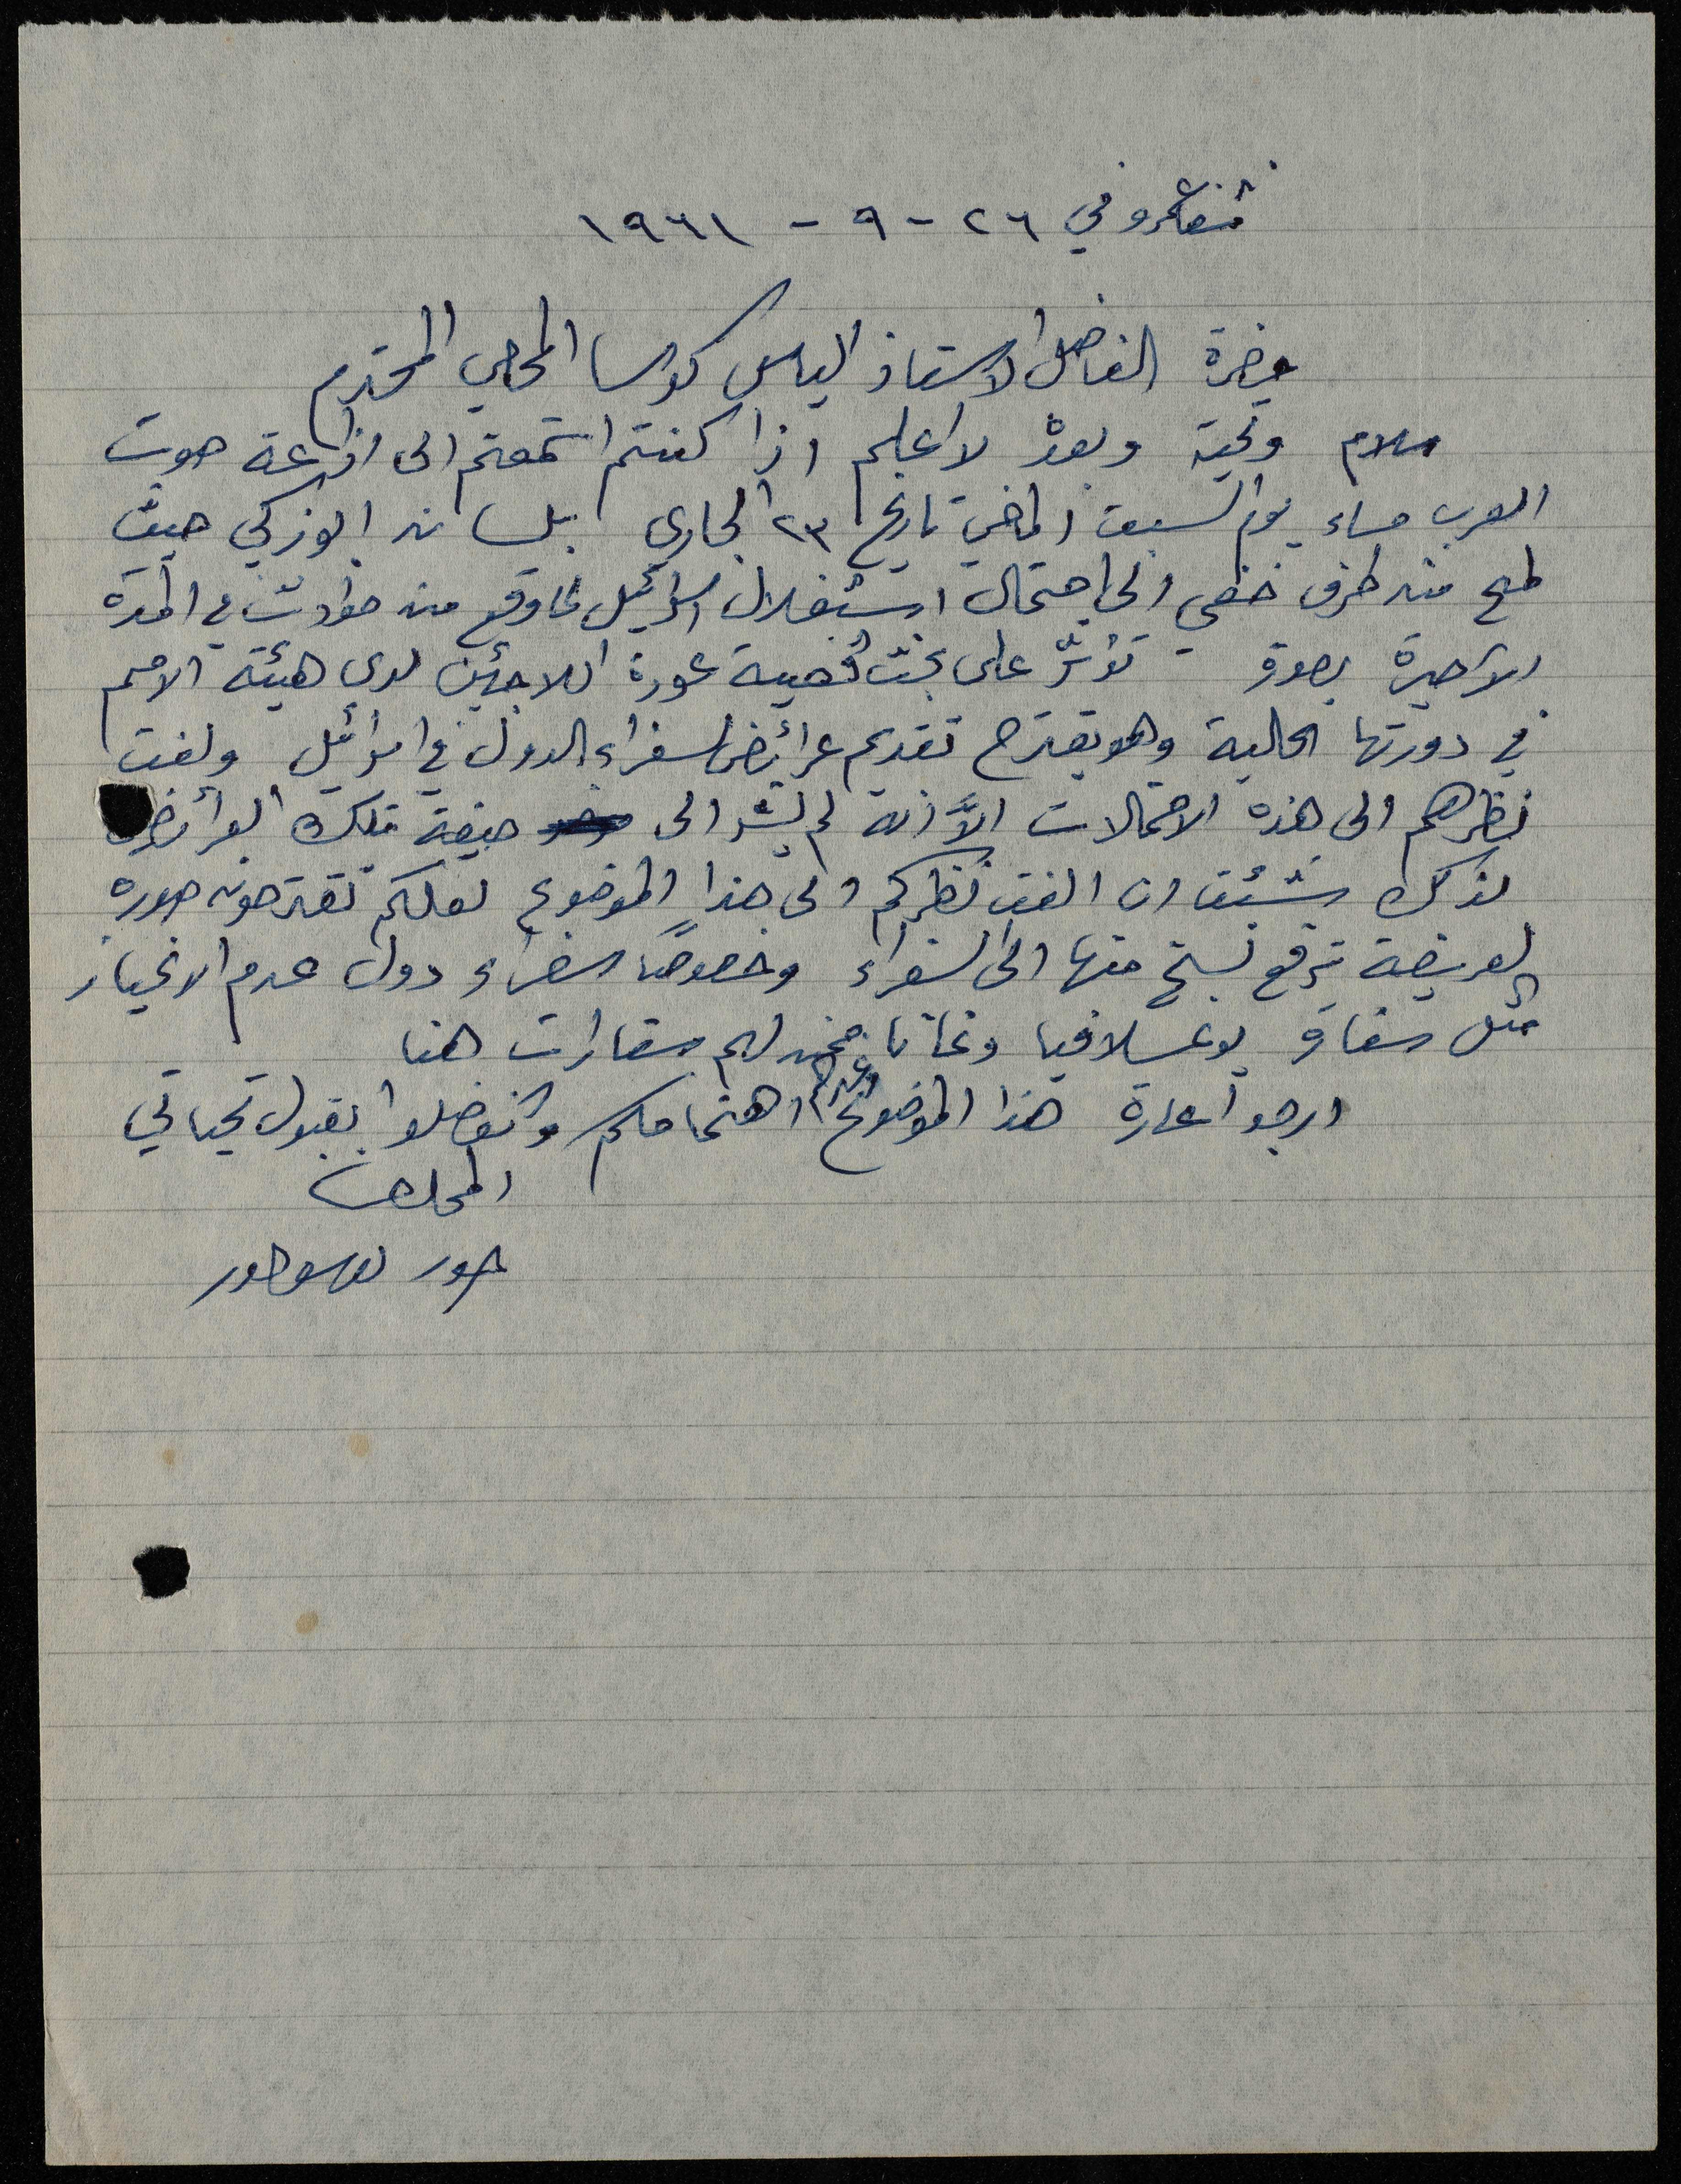 شفاعمرو في ٢٦ - ٩ - ١٩٦١
حضرة الفاضل الاستاذ الياس كوسا المحامي المحترم
سلام وتحية وبعد لا اعلم اذا كنتم استمعتم الى اذاعة صوت
العرب مساء يوم السبت الماضي تاريخ ٢٣ الجاري بلسان ابو زكي حيث
لمح من طرف خفي الى احتمال استغلال اسرائيل لما وقع من حوادث في المدة
الاخيرة بصورة تؤثر على بحث قضية عودة اللاجئين لدى هيئة الامم
في دورتها الحالية وهو يقترح تقديم عرائض لسفراء الدول في اسرائيل ولفت
نظرهم الى هذه الاحتمالات الاَّ انه لم يشر الى صيغة تلك العرائض
لذلك شئت ان الفت نظركم الى هذا الموضوع لعلكم تقترحون صورة
لعريضة ترفع نسخ منها الى السفراء وخصوصًا سفراء دول عدم الانحياز
مثل سفارة يوغسلافيا وغانا ممن لهم سفارات هنا
ارجو اعارة هذا الموضوع اهتمامكم وتفضلوا بقبول تحياتي
المخلص